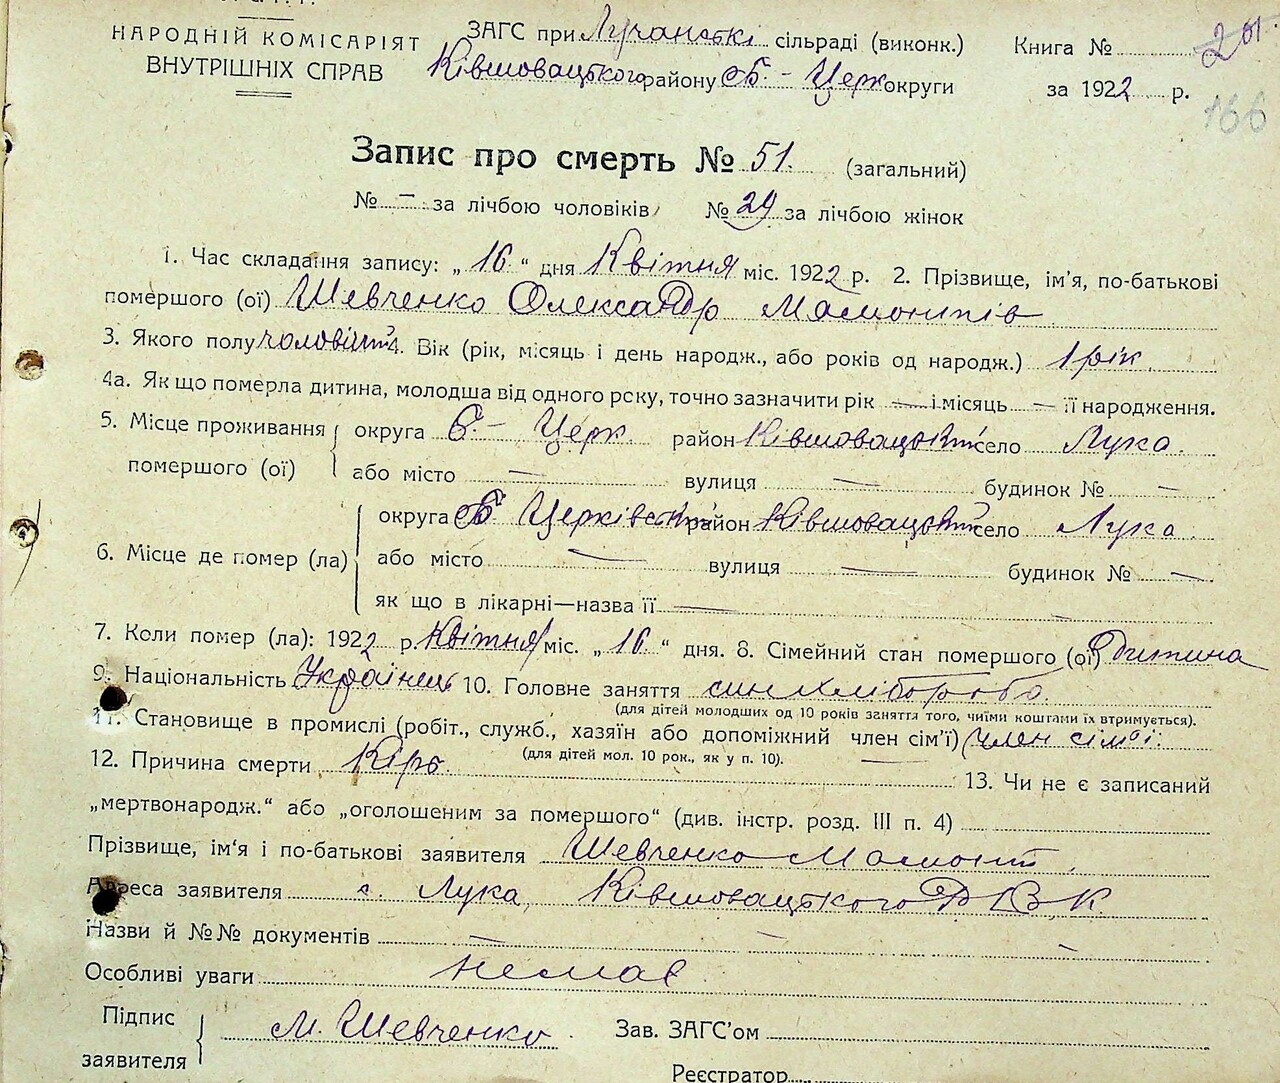 НАРОДНІЙ КОМІСАРІЯТ
ВНУТРІШНІХ СПРАВ
ЗАГС при Лучанські сільраді (виконк.)
Ківшовацького району Б.-Церк округи
Книга №
за 1922 р.
166
Запис про смерть № 51. (загальний)
№ — за лічбою чоловіків № 29 за лічбою жінок
1. Час складання запису: „16“ дня Квітня міс. 1922 р. 2. Прізвище, ім'я, по-батькові
помершого (ої) Шевченко Олександр Мамонтів
3. Якого полу чоловічт 4. Вік (рік, місяць і день народж., або років од народж.) 1 рік.
4а. Як що померла дитина, молодша від одного року, точно зазначити рік — і місяць — її народження.
5. Місце проживання помершого (ої)
округа Б-Церк. район Ківшовацьк село Лука.
або місто — вулиця — будинок № —
6. Місце де помер (ла)
округа Б Церківськ район Ківшовацьк село Лука.
або місто — вулиця — будинок № —
як що в лікарні—назва її —
7. Коли помер (ла): 1922 р. Квітня міс. „16“ дня. 8. Сімейний стан помершого (ої) Дитина
9. Національність Українець 10. Головне заняття син хлібороба.
(для дітей молодших од 10 років заняття того, чиїми коштами їх втримується).
11. Становище в промислі (робіт., служб., хазяїн або допоміжний член сім'ї) член сім'ї.
(для дітей мол. 10 рок., як у п. 10). —
12. Причина смерти Кірь. 13. Чи не є записаний
„мертвонародж.“ або „оголошеним за помершого“ (див. інстр. розд. III п. 4)
Прізвище, ім'я і по-батькові заявителя Шевченко Мамонт
Адреса заявителя с. Лука, Ківшовацького РВК
Назви й №№ документів — — —
Особливі уваги немає
Підпис заявителя М. Шевченко
Зав. ЗАГС'ом
Реєстратор